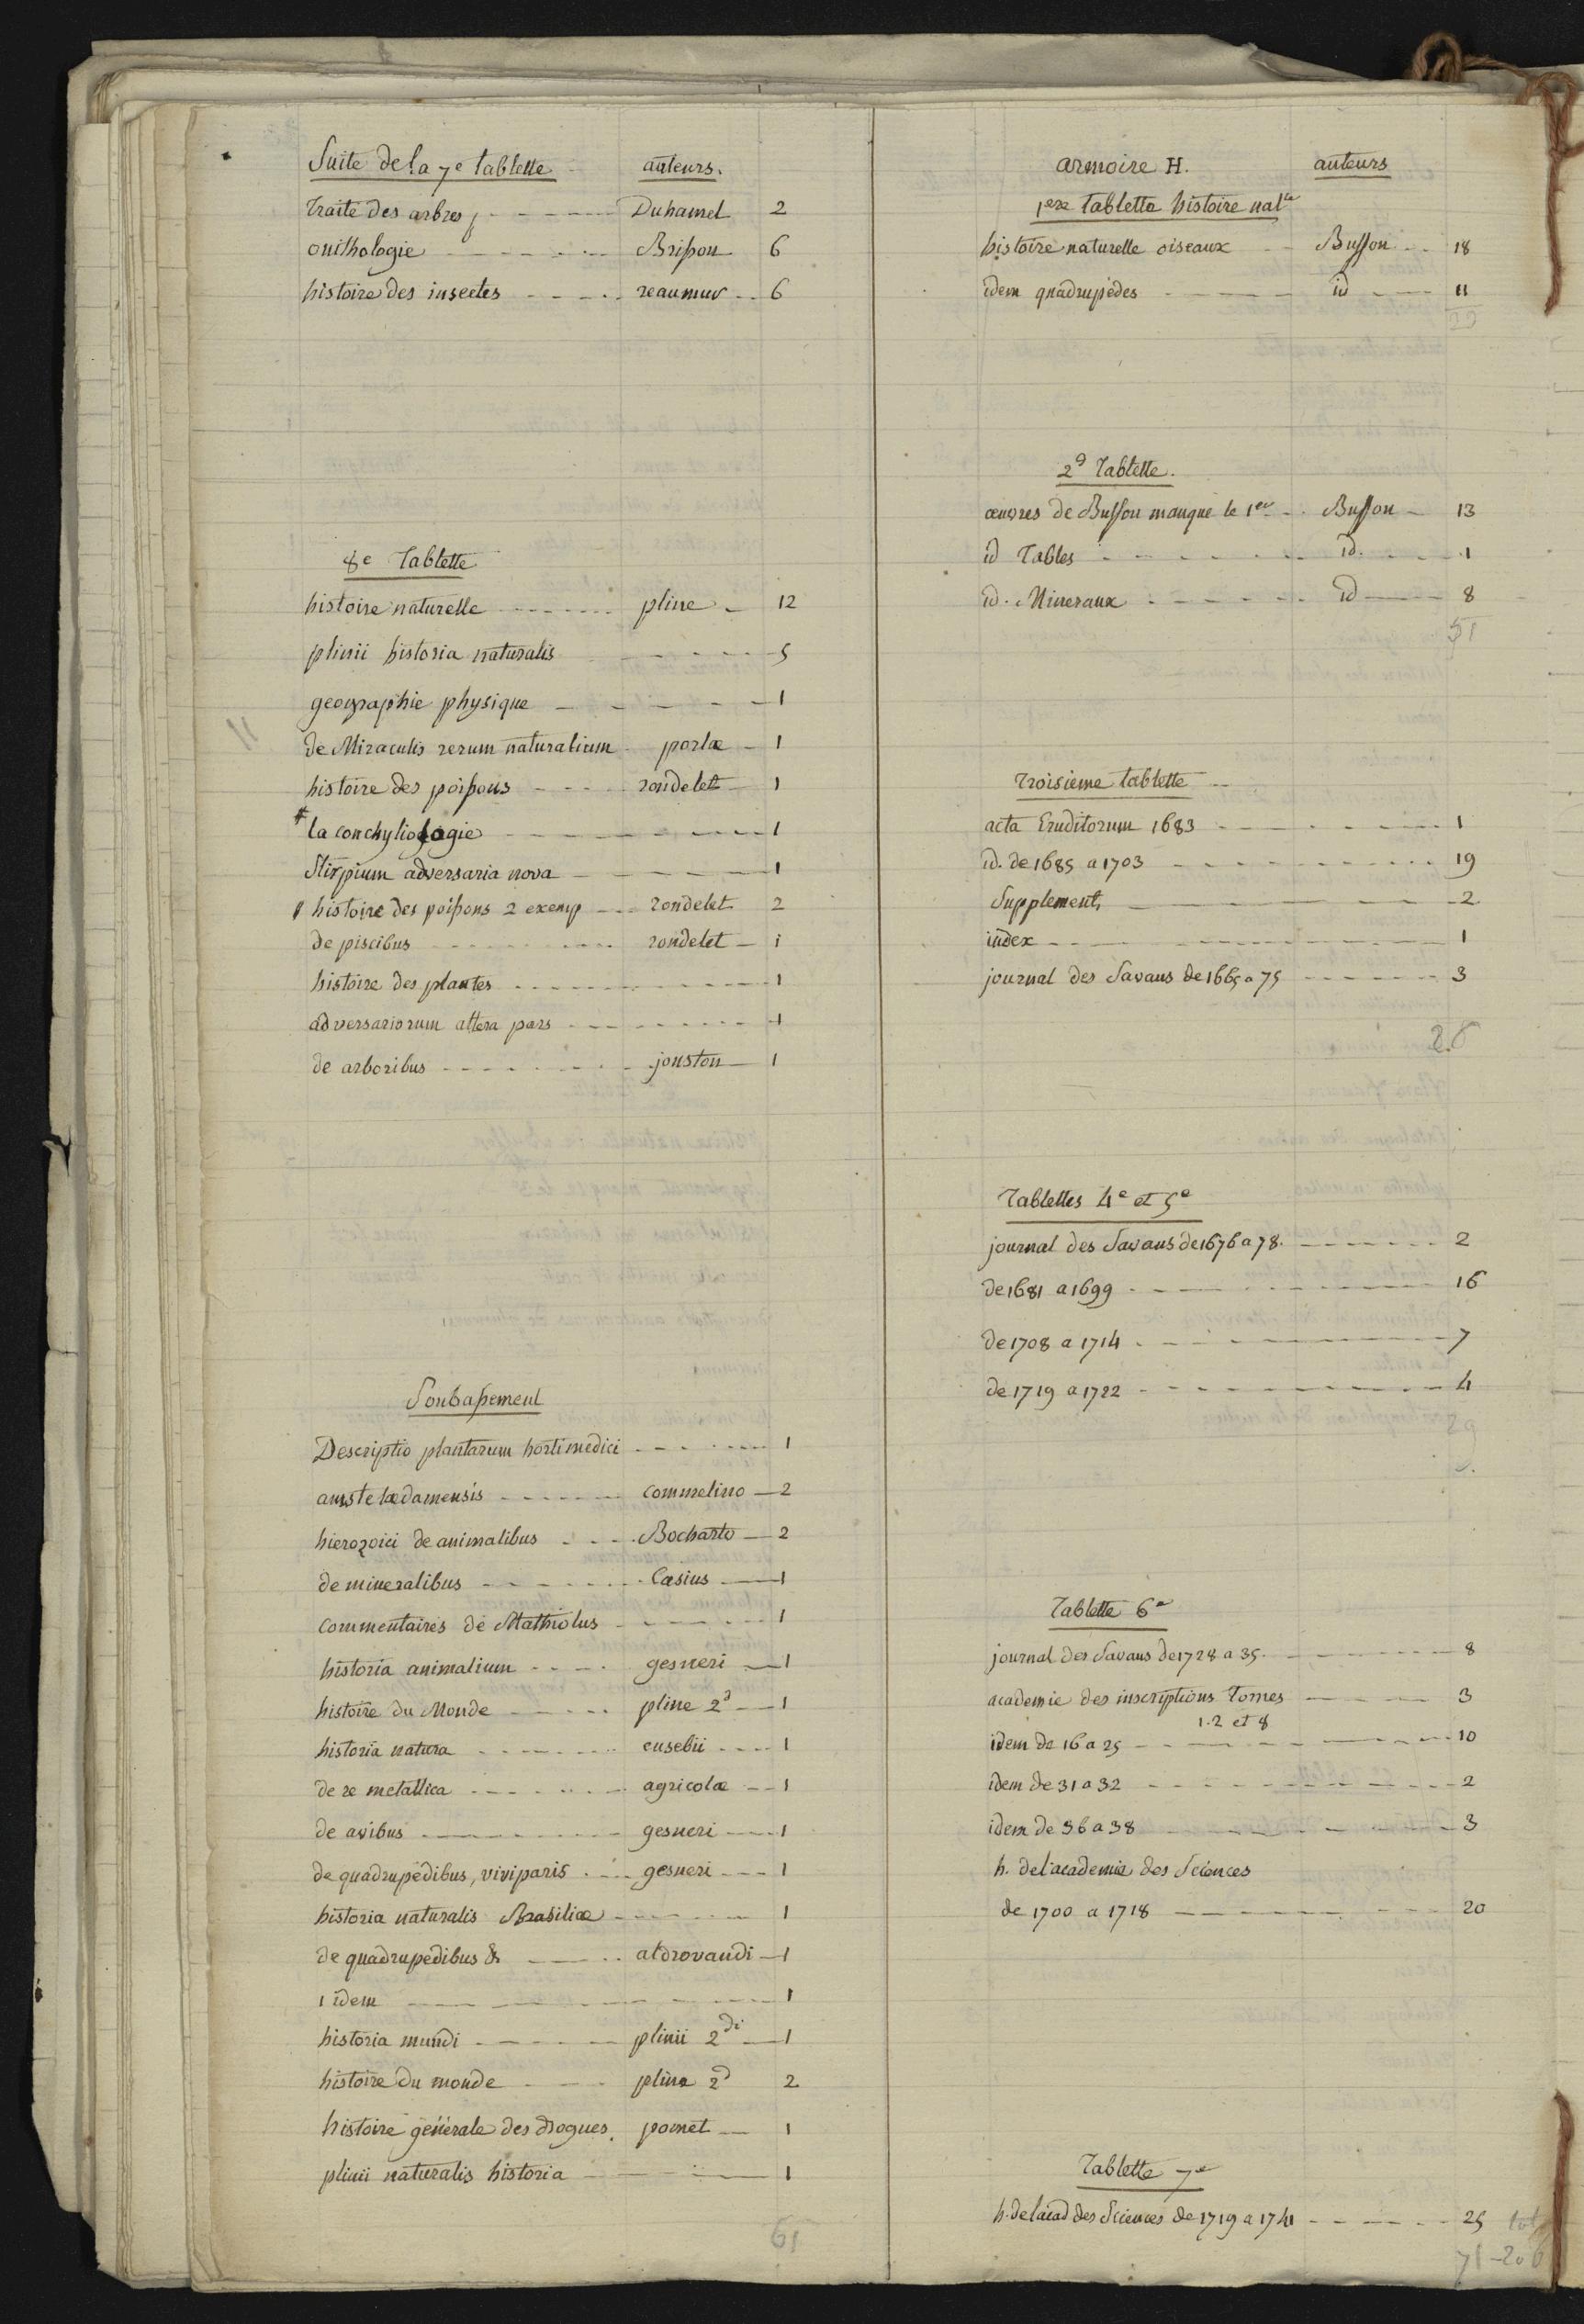 Suite de la 7e tablette auteurs.
Traité des arbres Duhamel 2
onithologie Brisson 6
histoire des insectes reaumur 6
8e Tablette
histoire naturelle pline 12
plinii historia naturalis 5
geographie physique 1
de Miraculis rerum naturalium portæ 1
histoire des poissons rondelet 1
la conchyliologie 1
Stirpium adversaria nova 1
histoire des poissons 2 exemp rondelet 2
de piscibus rondelet 1
histoire des plantes 1
adversariorum altera pars 1
de arboribus jonston 1
Soubassement
Descriptio plantarum horti medici 1
amstelædamensis commelino 2
hierozoici de animalibus Bocharto 2
de mineralibus Cæsius 1
commentaires de Mathiolus 1
historia animalium gesneri 1
histoire du Monde pline 2d 1
historia natura eusebii 1
de re metallica agricolæ 1
de avibus gesneri 1
de quadrupedibus, viviparis gesneri 1
historia naturalis Brasiliæ 1
de quadrupedibus & aldrovandi 1
1 idem 1
historia mundi plinii 2di 1
histoire du monde pline 2d 2
histoire génerale des drogues. pomet 1
plinii naturalis historia 1
61
armoire H. auteurs
1ere tablette histoire nalle
histoire naturelle oiseaux Buffon 18
idem quadrupèdes id 11
29
2d Tablette.
œuvres de Buffon manque le 1er Buffon 13
id Tables id. 1
id. Mineraux id 8
51
Troisieme tablette
acta Eruditorum 1683 1
id. de 1685 a 1703 19
Supplement 2
index 1
journal des Savans de 1665 a 75 3
26
Tablettes 4e et 5e
journal des Savans de 1676 a 78. 2
de 1681 a 1699 16
de 1708 a 1714 7
de 1719 a 1722 4
29
Tablette 6e
journal des Savans de 1728 a 35. 8
academie des inscriptions Tomes 3
1. 2 et 8
idem de 16 a 25 10
idem de 31 a 32 2
idem de 36 a 38 3
h. de l'academie des Sciences
de 1700 a 1718 20
Tablette 7e
h. de l'acad des Sciences de 1719 a 1741 25 tot
71 - 206